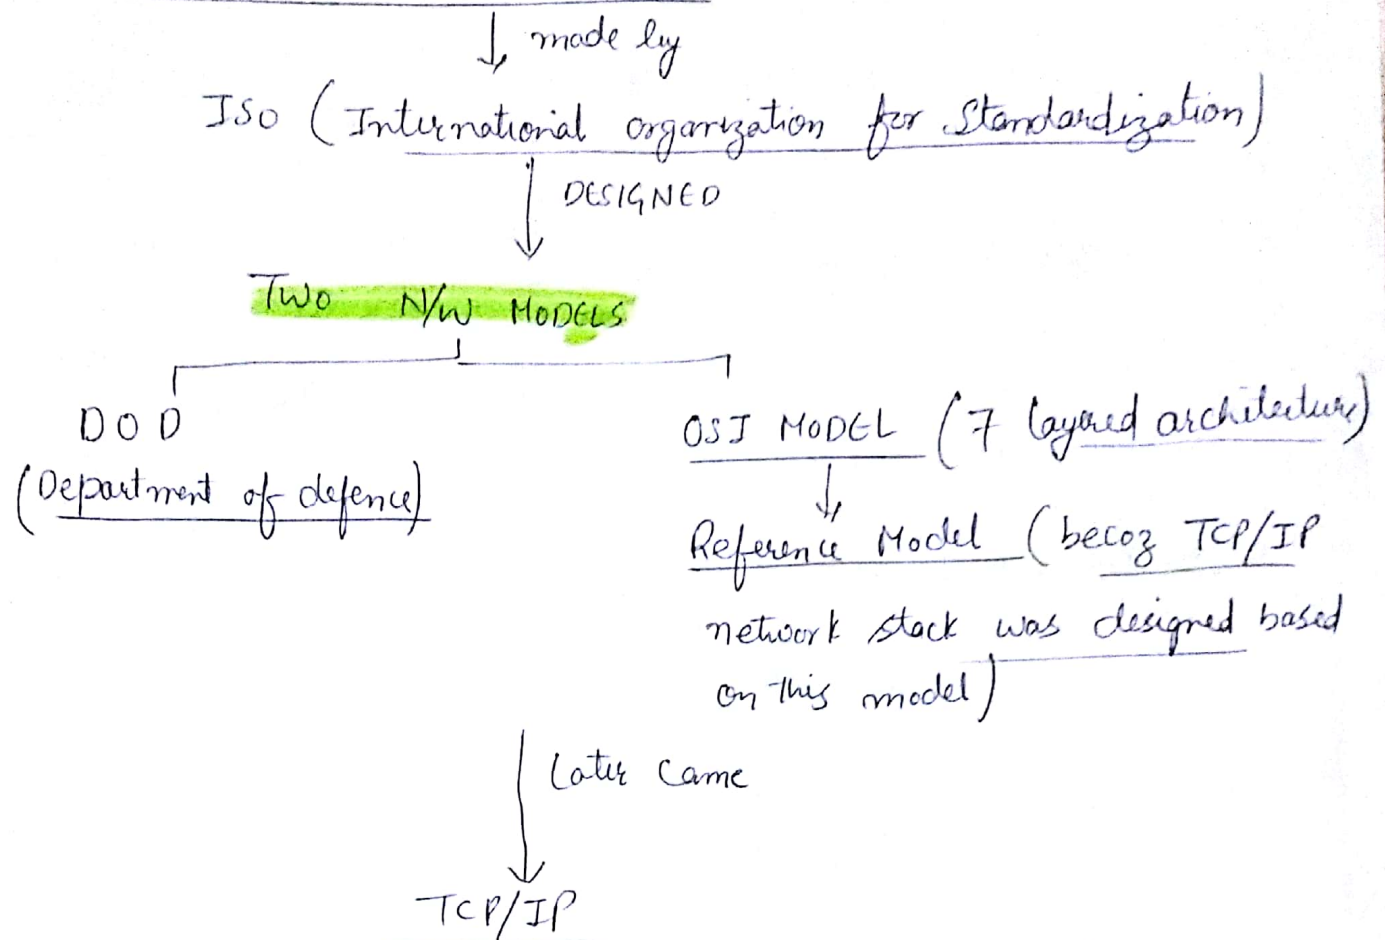 made by
ISO (International organization for Standardization)
DESIGNED
TWO N/W MODELS
DOD
(Department of defence)
OSI MODEL (7 layered architecture)
Reference Model (becoz TCP/IP
network stack was designed based
on this model)
Later came
TCP/IP